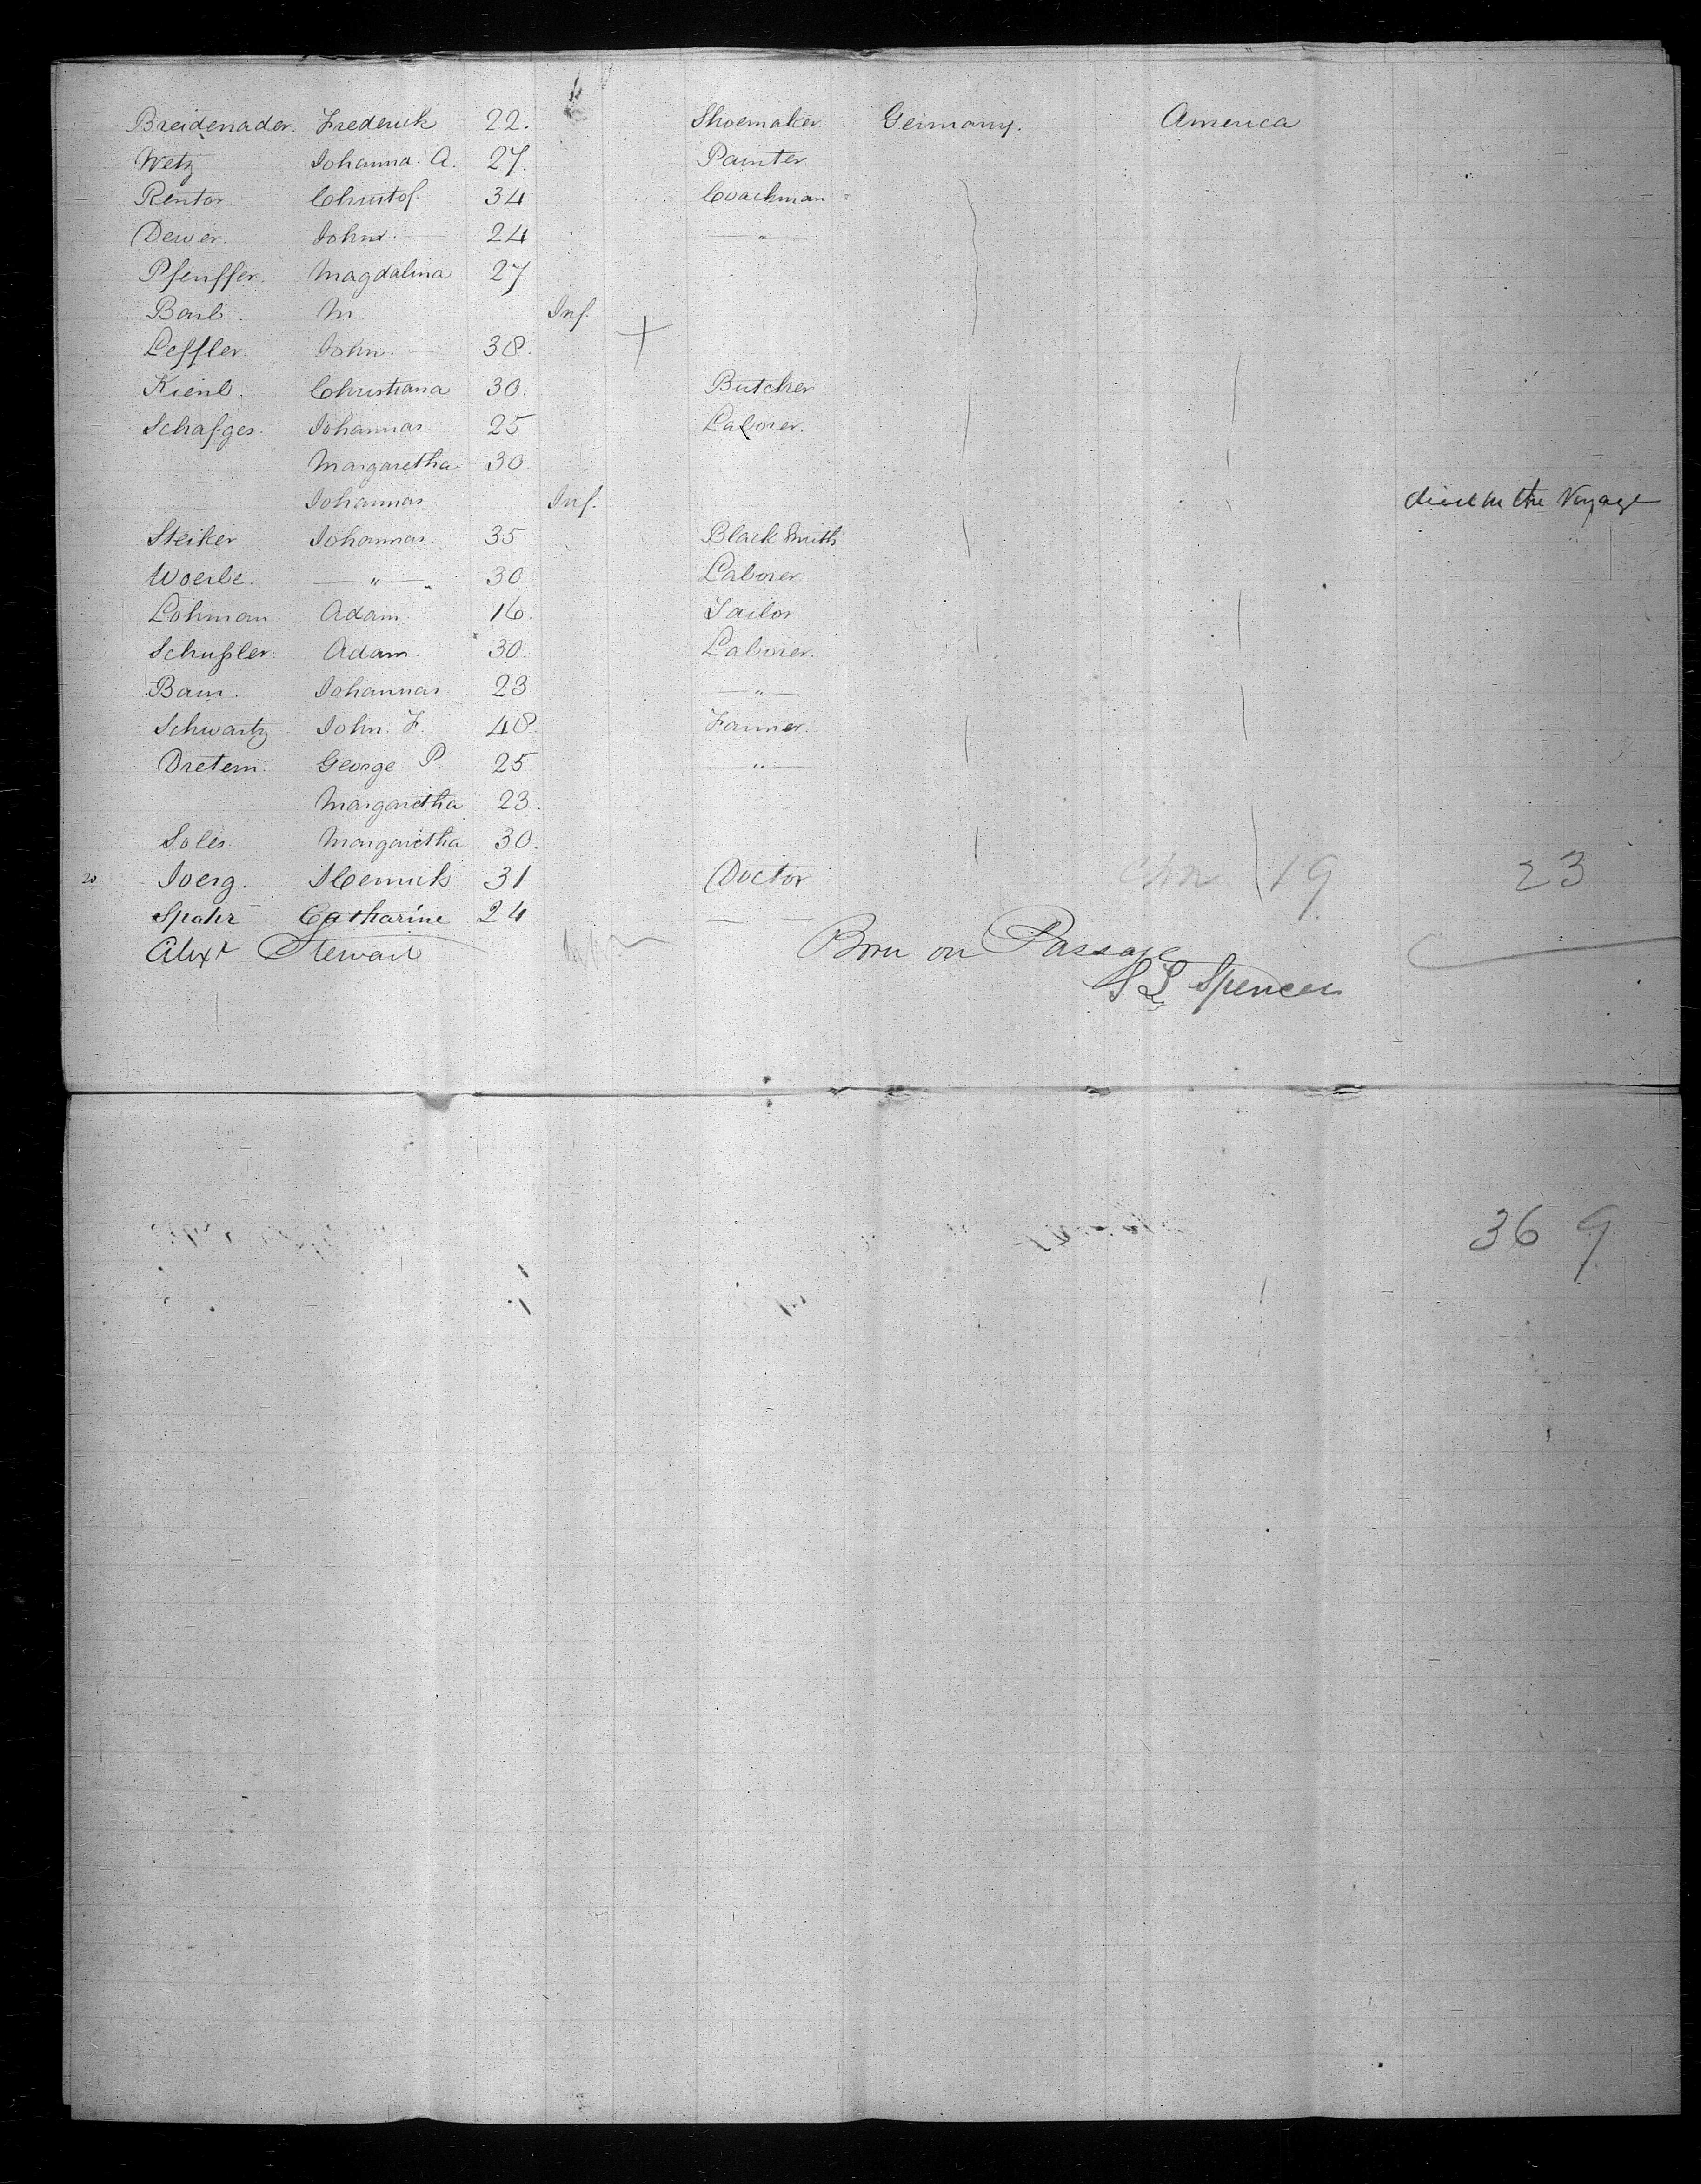 Breidenader. Frederick 22. Shoemaker. Germany. America
Wetz Johanna A. 27. Painter
Rentor Christof. 34 Coachman
Dewer. John. — 24 — " —
Pfeuffer. Magdalina 27
Barb. M. Inf.
Leffler. John. — 38.
Kienb. Christiana 30. Butcher
Schafges. Johannas. 25 Laborer.
Margaretha 30
Johannas. Inf. died on the Voyage
Steiker Johannas. 35 Black Smith
Woerbe. — " — 30 Laborer.
Lohman Adam. 16. Tailor
Schußler. Adam. 30. Laborer.
Bam. Johannas 23 — " —
Schwartz John. F. 48. Farmer.
Dretem. George P. 25 — " —
Margaretha 23.
Soles. Margaretha 30.
20 Joerg. Henrich 31 Doctor 19 23
Spahr Catharine 24 — —
Alexr Stewart Born on Passage
S L Spencer
36 9